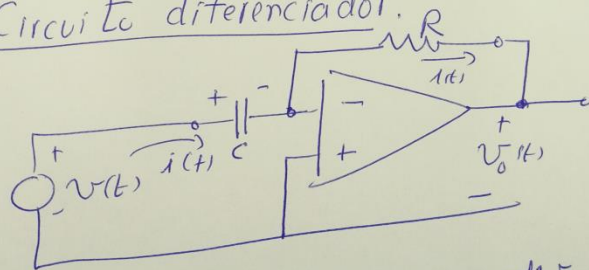 Circuito diferenciador.
R
i(t)
+ -
C
-
+
+ v(t) -
i(t)
+
v₀(t)
-